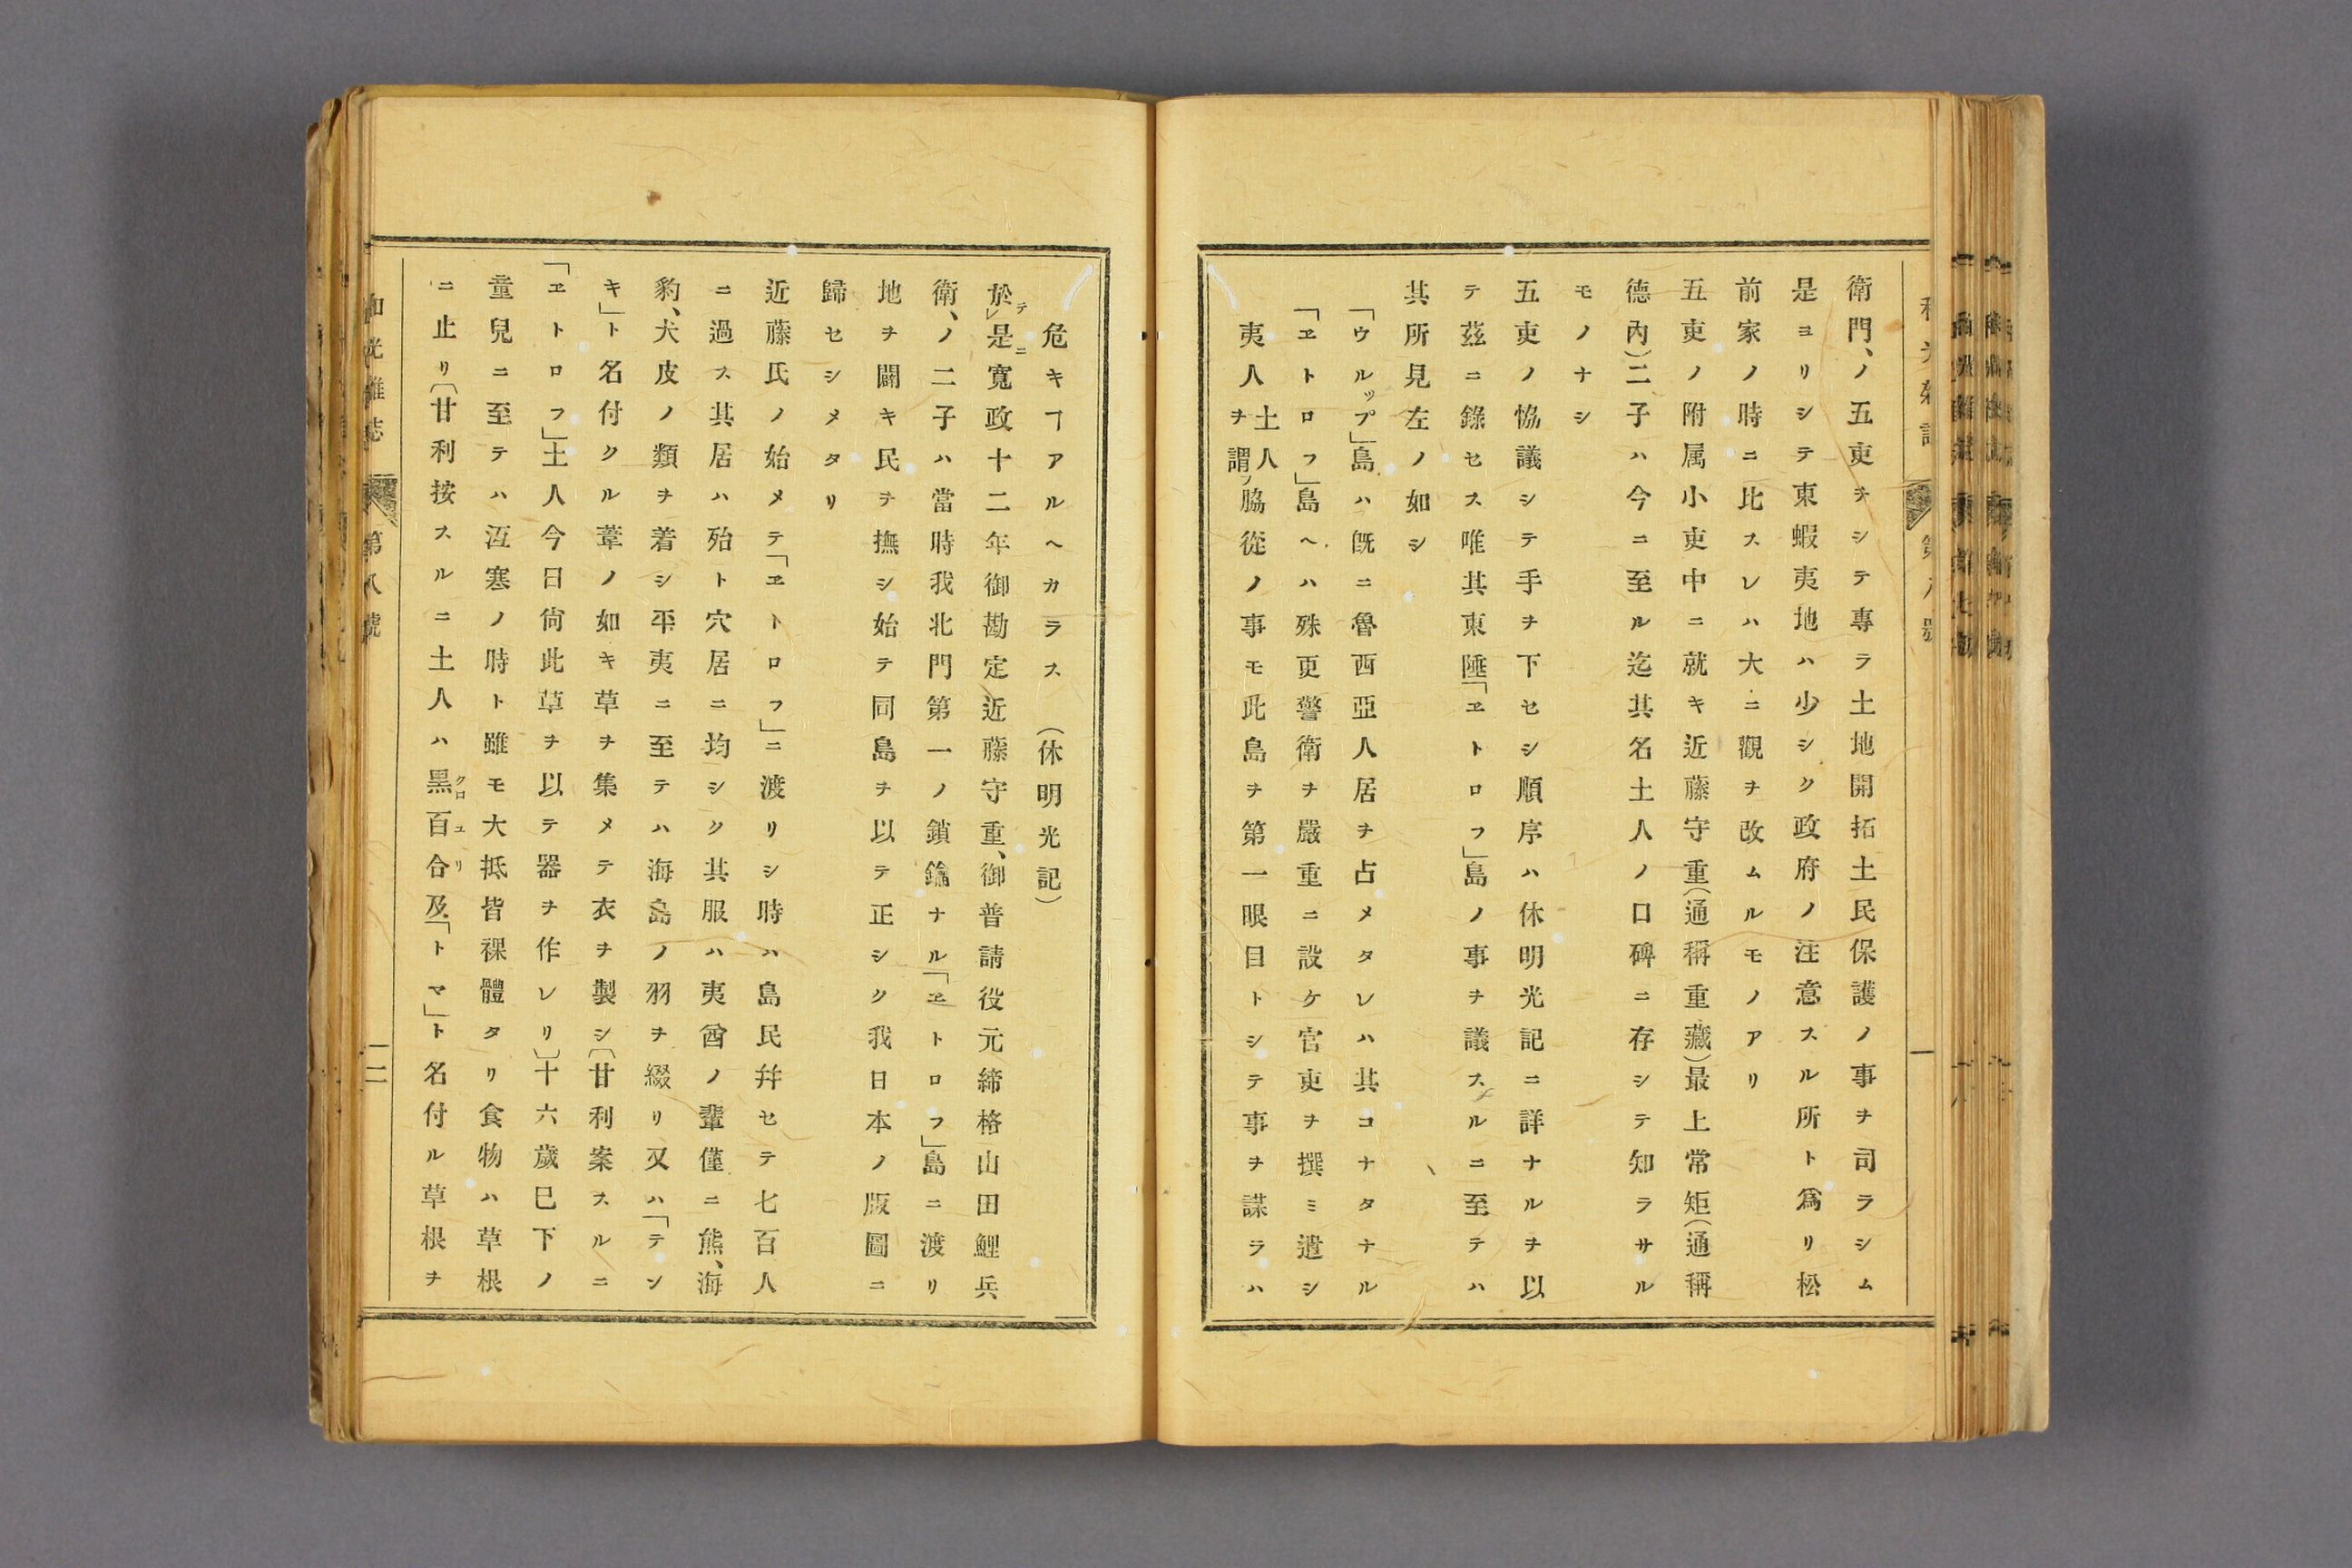 衛門、ノ五吏ヲシテ專ラ土地開拓土民保護ノ事ヲ司ラシム
是ヨリシテ東蝦夷地ハ少シク政府ノ注意スル所ト爲リ松
前家ノ時ニ比スレハ大ニ觀ヲ改ムルモノアリ
五吏ノ附属小吏中ニ就キ近藤守重(通稱重藏)最上常矩(通稱
德內)二子ハ今ニ至ル迄其名土人ノ口碑ニ存シテ知ラサル
モノナシ
五吏ノ恊議シテ手ヲ下セシ順序ハ休明光記ニ詳ナルヲ以
テ茲ニ錄セス唯其東陲「ヱトロフ」島ノ事ヲ議スルニ至テハ
其所見左ノ如シ
「ウルップ」島ハ既ニ魯西亞人居ヲ占メタレハ其コナタナル
「ヱトロフ」島ヘハ殊更警衛ヲ嚴重ニ設ケ官吏ヲ撰ミ遣シ
夷人土人ヲ謂フ脇從ノ事モ此島ヲ第一眼目トシテ事ヲ謀ラハ
危キヿアルヘカラス (休明光記)
於テ是ニ寬政十二年御勘定近藤守重、御普請役元締格山田鯉兵
衛、ノ二子ハ當時我北門第一ノ鎖鑰ナル「ヱトロフ」島ニ渡リ
地ヲ闢キ民ヲ撫シ始テ同島ヲ以テ正シク我日本ノ版圖ニ
歸セシメタリ
近藤氏ノ始メテ「ヱトロフ」ニ渡リシ時ハ島民幷セテ七百人
ニ過ス其居ハ殆ト穴居ニ均シク其服ハ夷酋ノ輩僅ニ熊、海
豹、犬皮ノ類ヲ着シ平夷ニ至テハ海島ノ羽ヲ綴リ又ハ「テン
キ」ト名付クル葦ノ如キ草ヲ集メテ衣ヲ製シ〔甘利案スルニ
「ヱトロフ」土人今日尙此草ヲ以テ器ヲ作レリ〕十六歲巳下ノ
童兒ニ至テハ沍寒ノ時ト雖モ大抵皆裸體タリ食物ハ草根
ニ止リ〔甘利按スルニ土人ハ黑百合クロユリ及「トマ」ト名付ル草根ヲ
雜誌 第八號
二